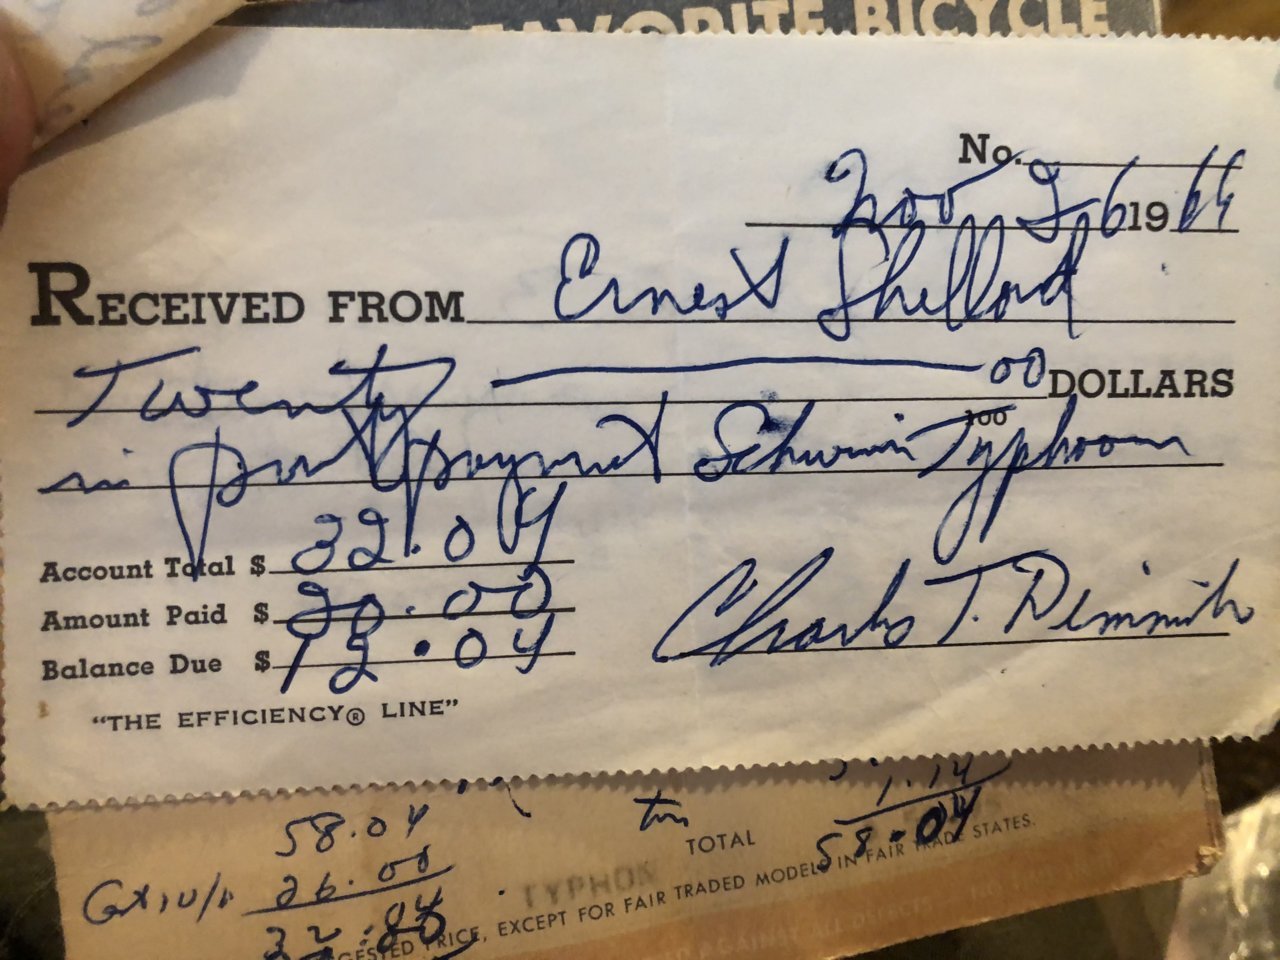 FAVORITE BICYCLE
No.
Nov 26 1964
RECEIVED FROM Ernest Shellord
Twenty 00 DOLLARS
100
in part payment Schwinn Typhoon
Account Total $ 32.04
Amount Paid $ 20.00
Balance Due $ 12.04
Charles T. Dimmith
"THE EFFICIENCY® LINE"
1.14
58.04
TOTAL 58.04
26.00
TYPHOON
GESTED PRICE, EXCEPT FOR FAIR TRADED MODELS IN FAIR TRADE STATES.